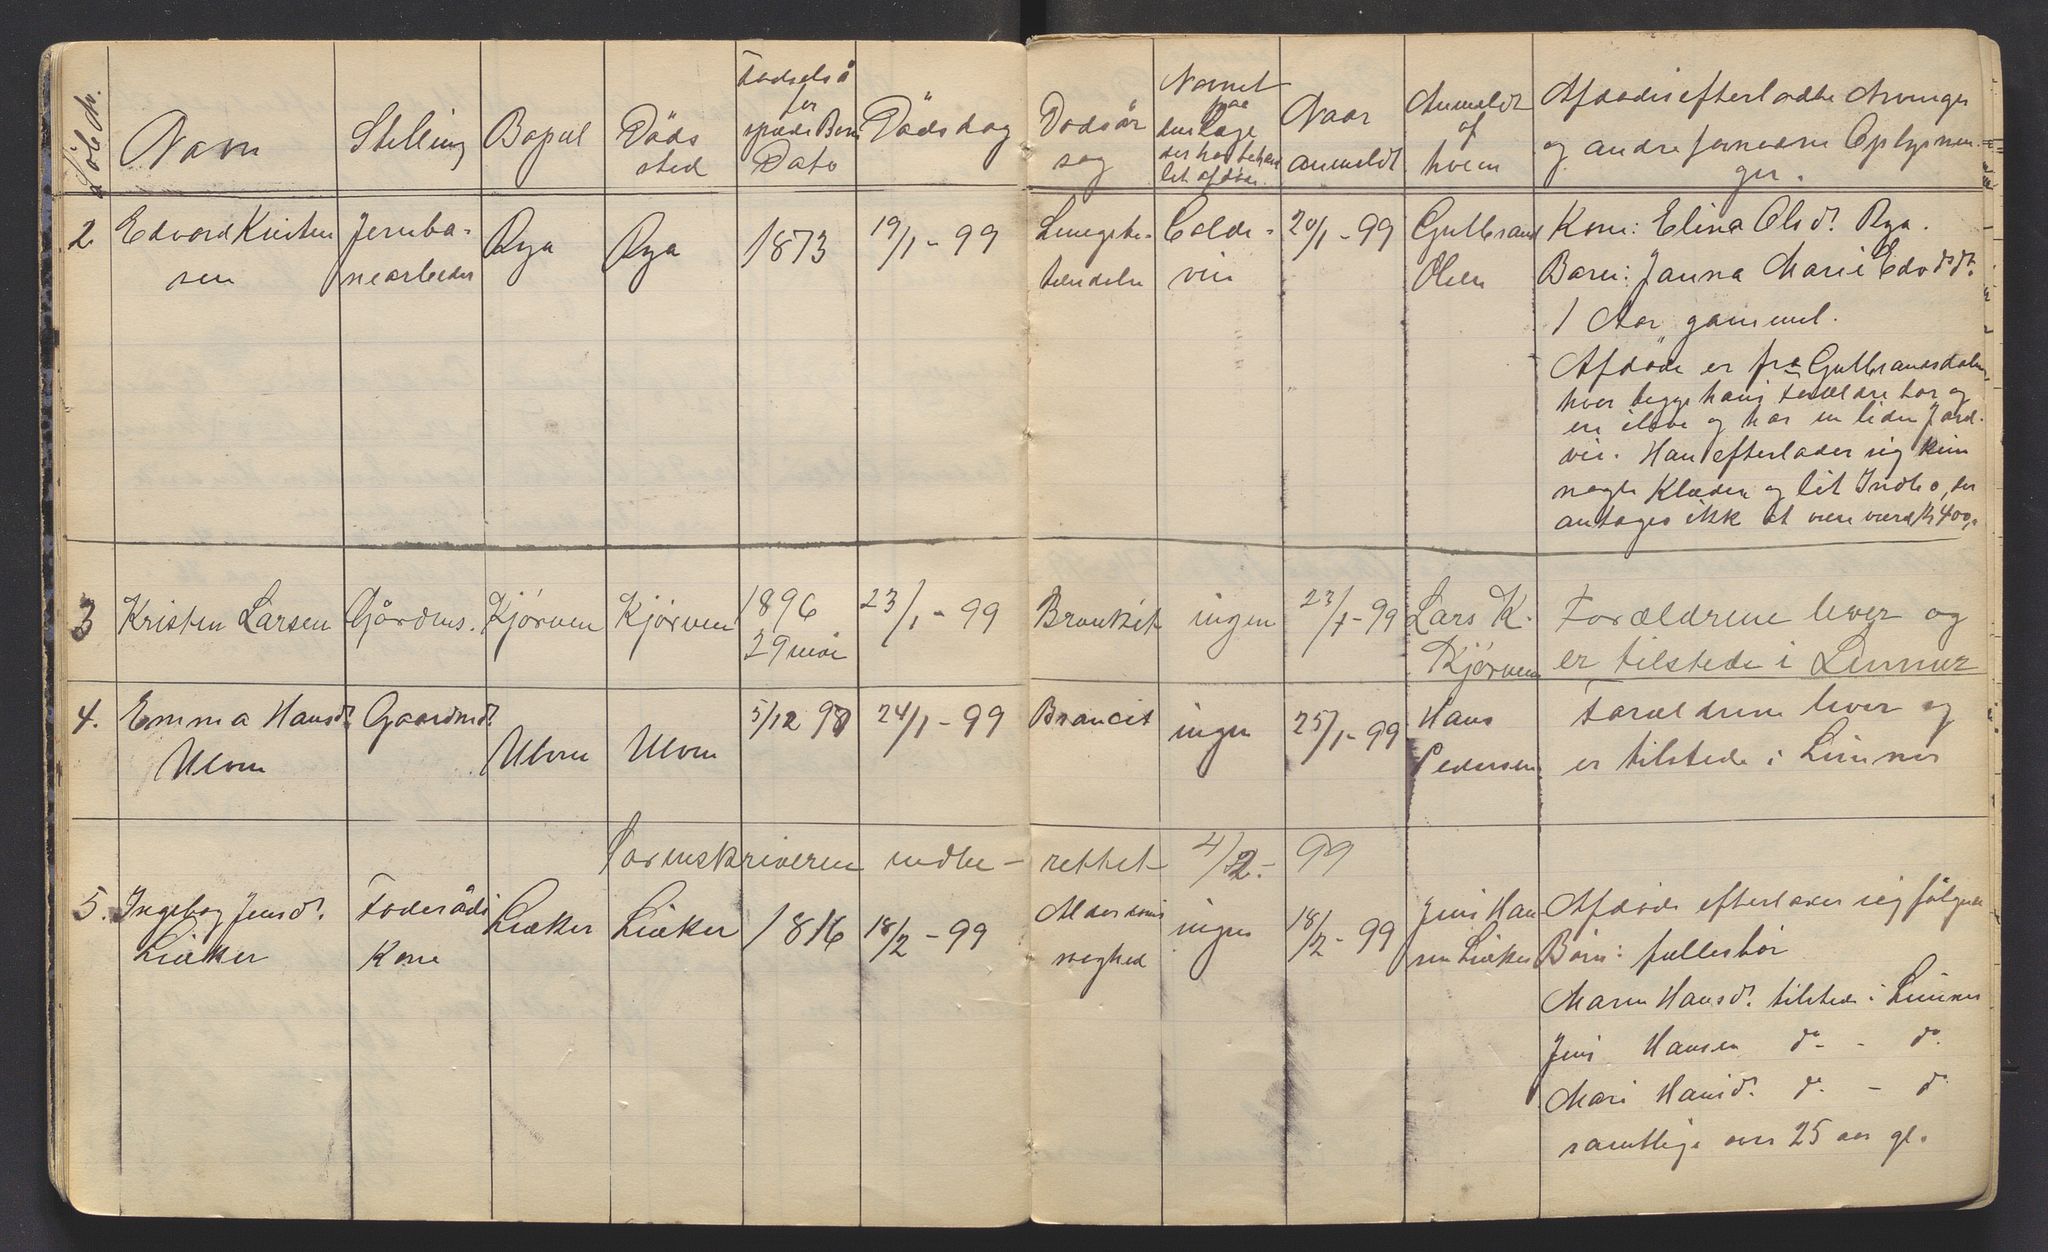 Löbe No.
Navn
Stilling
Bopæl
Döds
sted
Fødselså
for
spæde Børn
Dato
Dödsdag
Dødsår
sag
Navnet
paa
den Læge
der har behand
let afdøde
Naar
anmeldt
Anmeldt
af
hvem
Afdødes efterladte Arvinger
og andre fornødne Oplysnin-
ger.
2. Edvard Kristen
sen
Jernba-
nearbeider
Rya
Rya
1873
19/1 - 99
Lungebe-
tændelse
Colde-
vin
20/1 - 99
Gulbrand
Olsen
Kone: Elina Olsdt. Rya.
Barn: Janna Marie Edvdsdt.
1 Aar gammel.
Afdøde er fra Gulbrandsdalen
hvor begge hans forældre bor og
er ilive og har en liden Jord-
vei. Han efterlader sig kun
nogle Klæder og lit Indbo, der
antages ikke at være værd Kr 400,-
3 Kristen Larsen
Gårdms.
Kjørven
Kjørven
1896
29 mai
23/1 - 99
Bronkit
ingen
23/1 - 99
Lars K.
Kjørven
Forældrene lever og
er tilstede i Lunner
4. Emma Hansdt.
Ulven
Gaardmdt.
Ulven
Ulven
5/12 98
24/1 - 99
Broncit
ingen
25/1 - 99
Hans
Pedersen
Forældrene lever og
er tilstede i Lunner
Sorenskriveren indbe-
rettet 4/2 - 99
5. Ingeborg Jensdt.
Liæker
Foderåds
Kone
Liæker
Liæker
1816
18/2 - 99
Alderdoms
svaghed
ingen
18/2 - 99
Jens Han
sen Liæker
Afdøde efterlader sig følgende
Børn: fællesbør
Maren Hansdt. tilstede i Lunner
Jens Hansen do. - do.
Mari Hansdt. do. - do
samtlige over 25 aar gl.